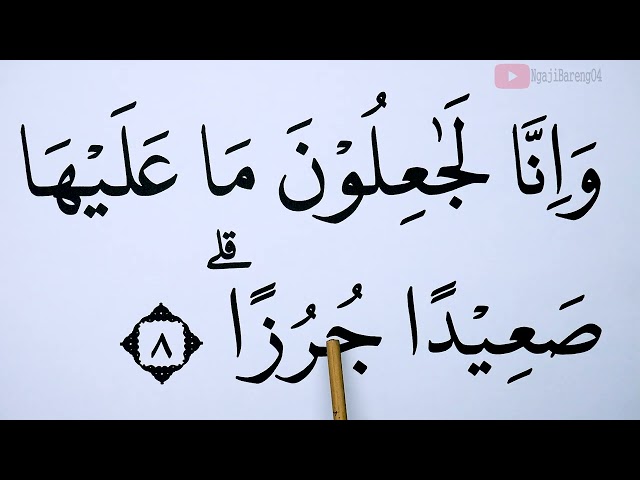 NgajiBareng04
وَاِنَّا لَجٰعِلُوْنَ مَا عَلَيْهَا
صَعِيْدًا جُرُزًاۗ ٨